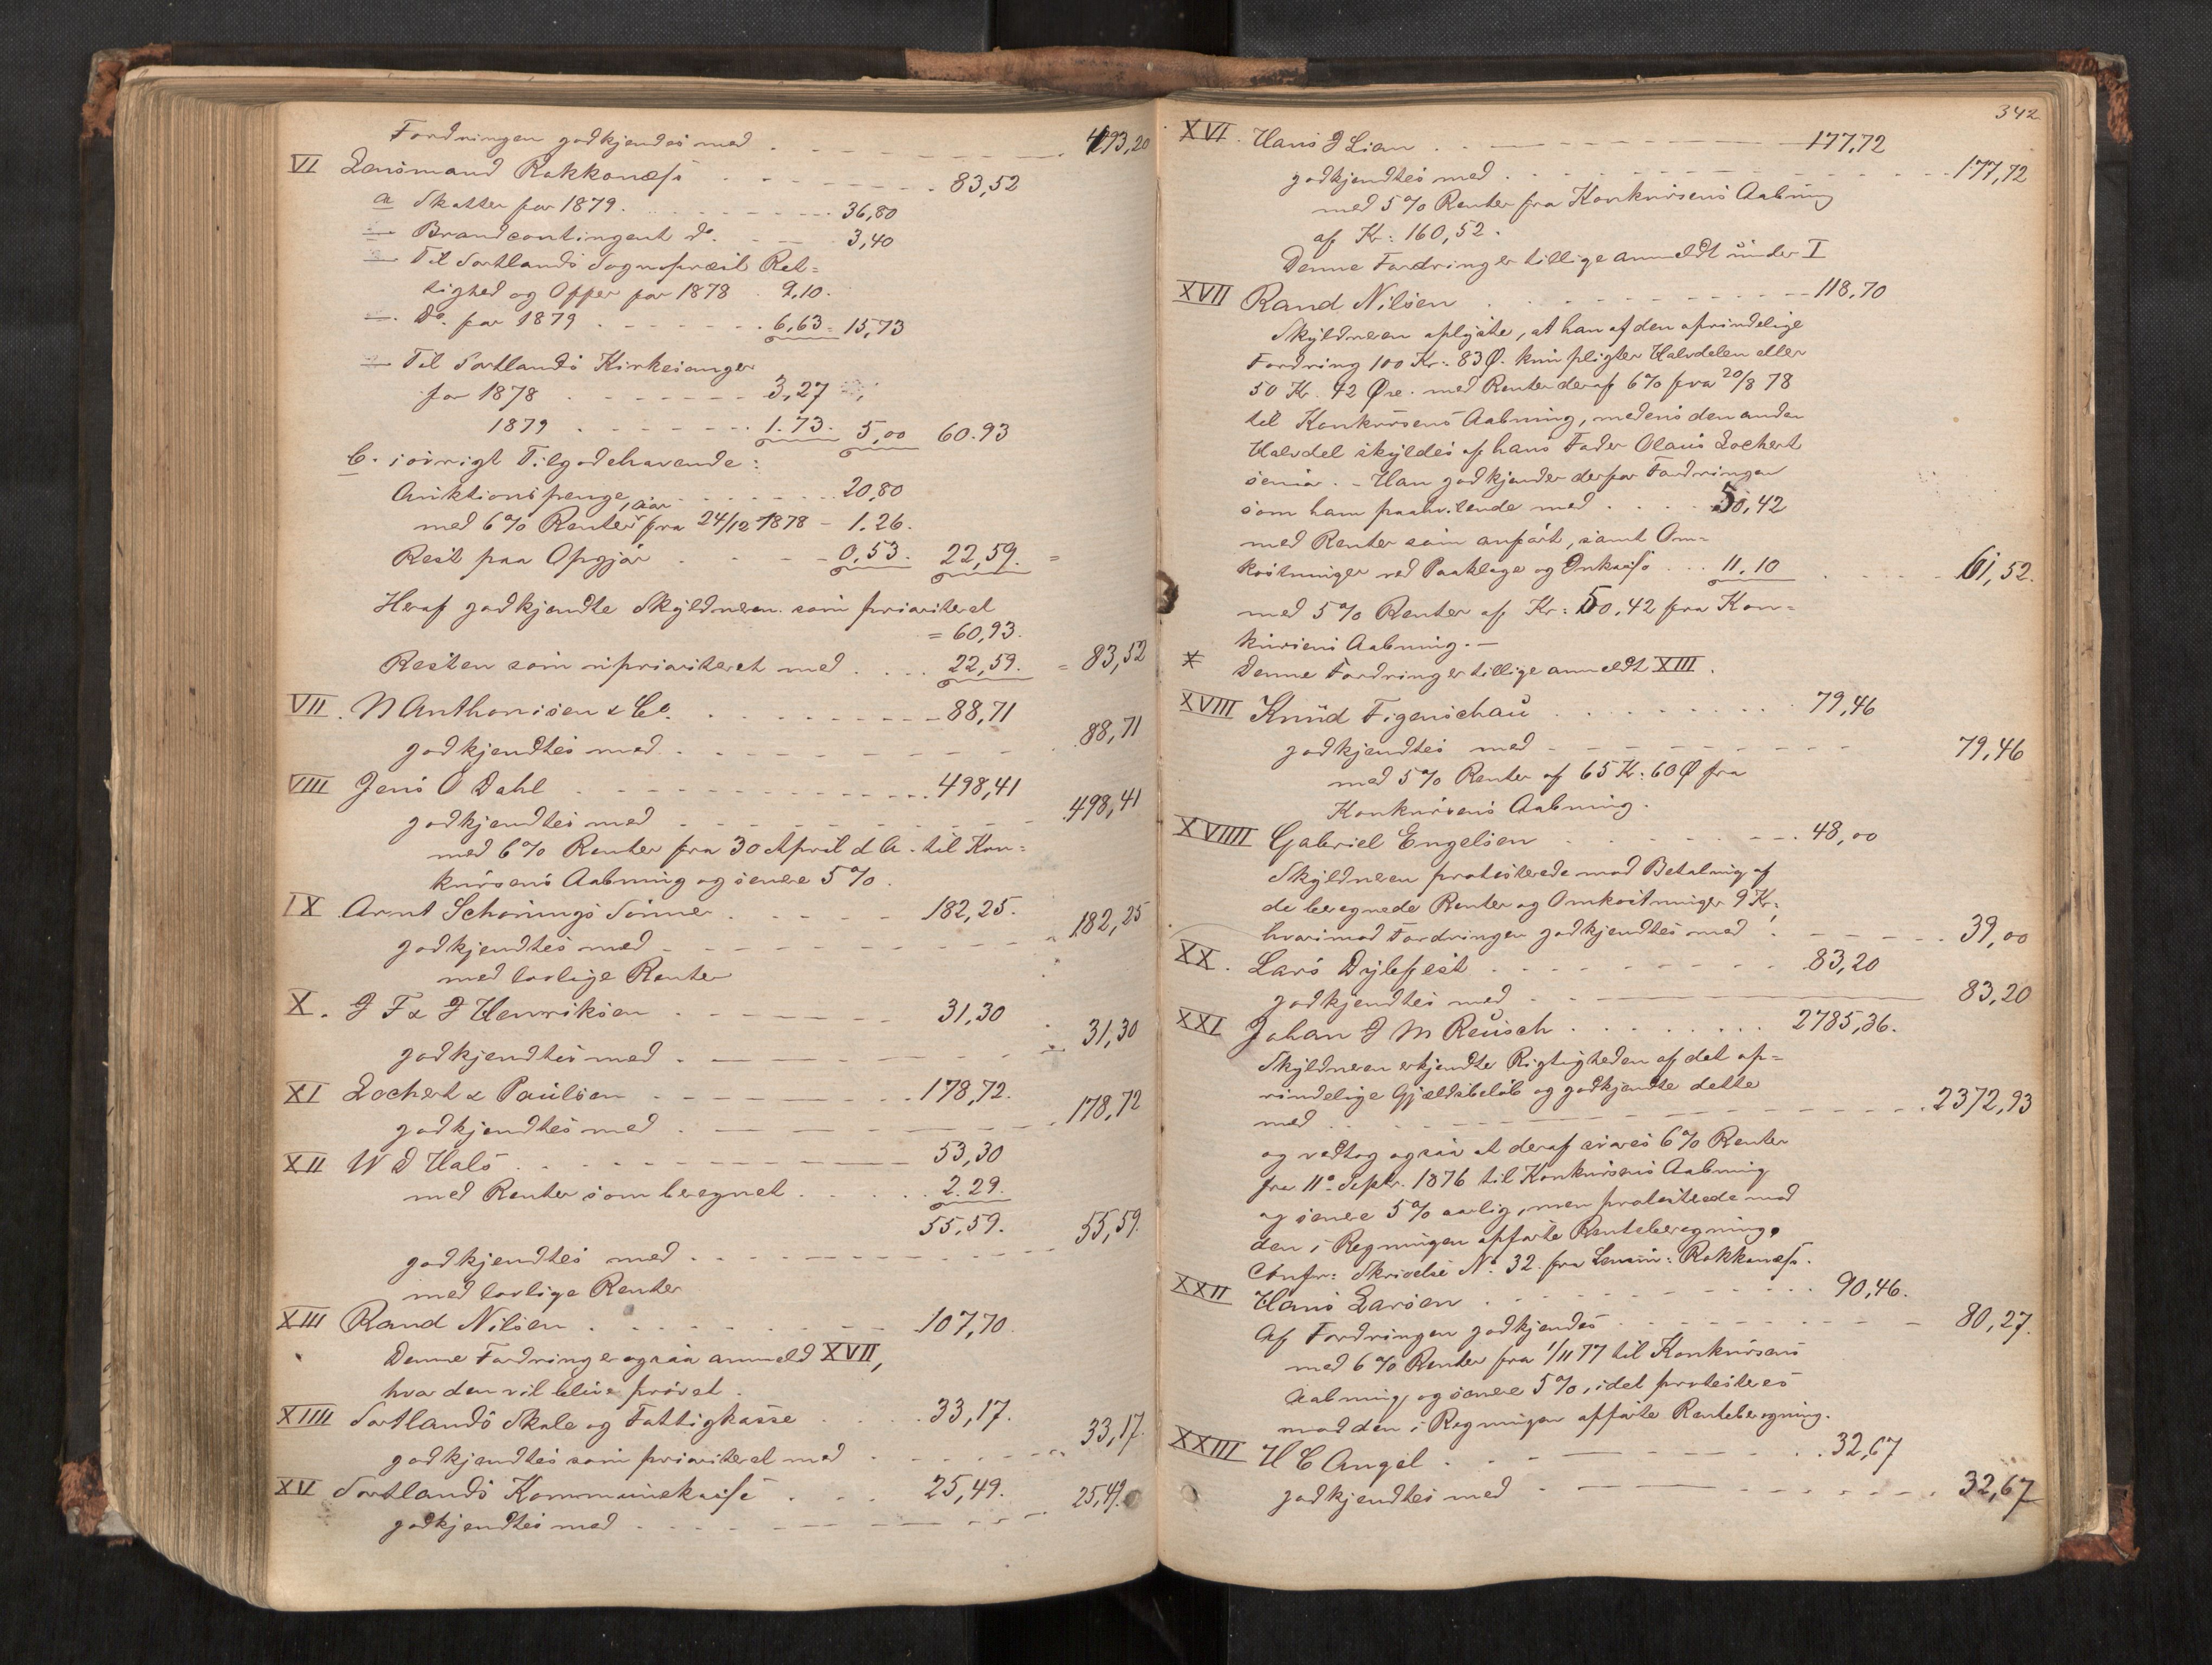 Fordringen godkjendes med . 493,20
VI Lensmand Rokkonæss . 83,52
a Skatter for 1879. 36,80
Brandcontingent do. 3,40
Til Sortlands Sognepræst Ret=
tighed og Offer for 1878 . 9,10.
Do. for 1879 . 6,63 = 15,73
Til Sortlands Kirkesanger
for 1878 . 3,27
1879 . 1.73. 5,00 60.93
b. iøvrigt Tilgodehavende:
Auktionspenge . 20,80
med 6% Renter fra 24/12 1878 - 1.26.
Rest paa Opgjør . 0,53. 22,59. =
Heraf godkjendte Skyldneren som prioriteret
= 60,93.
Resten som uprioriteret med . 22,59. = 83,52
VII. N Anthonisen & Co. 88,71
godkjendtes med . 88,71
VIII Jens O Dahl . 498,41
godkjendtes med . 498,41
med 6% Renter fra 30 April d A. til Kon=
kursens Aabning og senere 5%.
IX Arnt Schønings Sønner . 182,25.
godkjendtes med . 182,25
med lovlige Renter
X. J F & J Henriksen . 31,30
godkjendtes med . 31,30
XI Lochert & Paulsen . 178,72.
godkjendtes med . 178,72
XII W D Hals . 53,30
med Renter som beregnet . 2.29.
55,59. 55,59.
godkjendtes med .
med lovlige Renter
XIII Rand Nilsen . 107,70
Denne Fordring er ogsaa anmeld XVII,
hvor den vil blive prøvet.
XIIII Sortlands Skole og Fattigkasse . 33,17.
godkjendtes som prioriteret med . 33,17.
XV Sortlands Kommunekasse . 25,49.
godkjendtes med . 25,49.
342
XVI. Hans J Lian . 177,72
godkjendtes med . 177,72
med 5% Renter fra Konkursens Aabning
af Kr: 160,52.
Denne Fordring er tillige anmeldt under I
XVII Rand Nilsen . 118,70
Skyldneren oplyste, at han af den oprindelige
Fordring 100 Kr: 83 Ø. kun pligter Halvdelen eller
50 Kr. 42 Øre. med Renter deraf 6% fra 20/8 78
til Konkursens Aabning, medens den anden
Halvdel skyldes af hans Fader Olaus Lochert
senior. - Han godkjender derfor Fordringen
som ham paahvilende med . 50,42
med Renter som anført, samt Om=
kostninger ved Paaklage og Inkasso . 11.10 . 61,52.
med 5% Renter af Kr: 50,42 fra Kon=
kursens Aabning. —
* Denne Fordring er tillige anmeldt XIII.
XVIII Knud Figenschau . 79,46
godkjendtes med . 79,46
med 5% Renter af 65 Kr: 60 Ø fra
Konkursens Aabning.
XVIIII Gabriel Engelsen . 48,00
Skyldneren protesterede mod Betaling af
de beregnede Renter og Omkostninger 9 Kr.,
hvorimod Fordringen godkjendtes med . 39,00
XX. Lars Dybfest . 83,20
godkjendtes med . 83,20
XXI Johan J M Reusch . 2785,36.
Skyldneren erkjendte Rigtigheden af det op=
rindelige Gjældsbeløb og godkjendte dette
med . 2372,93
og vedtog ogsaa at deraf svares 6% Renter
fra 11te Septr. 1876 til Konkursens Aabning
og senere 5% aarlig, men protesterede mod
den i Regningen opførte Renteberegning.
Confr: Skrivelse No. 32 fra Lensm: Rokkonæss.
XXII Hans Larsen . 90,46.
Af Fordringen godkjendes . 80,27.
med 6% Renter fra 1/11 77 til Konkursens
Aabning, og senere 5%, idet protesteres
mod den i Regningen opførte Renteberegning.
XXIII H C Angel . 32,67
godkjendtes med . 32,67